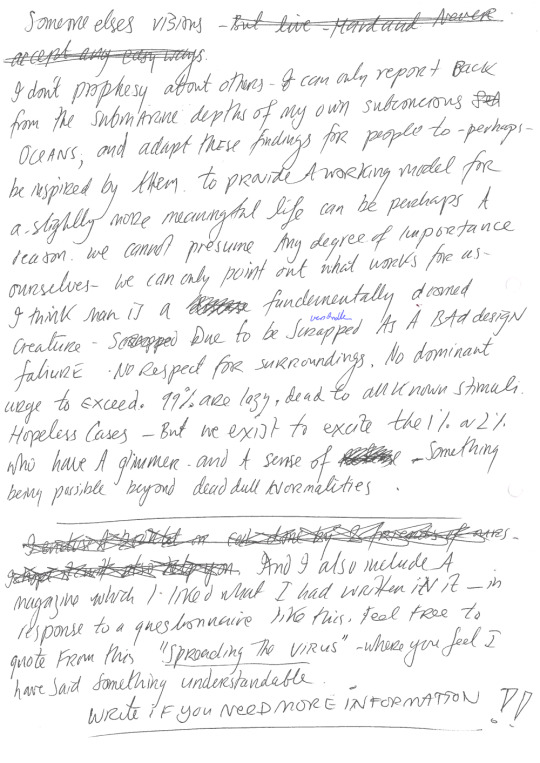 Someone elses visions - But live - Hard and Never
accept any easy ways.
I don't prophesy about others - I can only report Back
from the submarine depths of my own subconcious
OCEANS, and adapt these findings for people to - perhaps -
be inspired by them. to provide A working model for
a - slightly more meaningful life can be perhaps A
reason. we cannot presume Any degree of importance
ourselves - we can only point out what works for us -
I think man is a fundementally doomed
creature - Scrapped Due to be Scrapped As A BAd design
faliure. No respect for surroundings. No dominant
urge to exceed. 99% are lazy, dead to all known stimuli.
Hopeless Cases - But we exist to excite the 1% or 2%
who have A glimmer - and A sense of - Something
being possible beyond dead dull Normalities.
And I also include A
magazine which I liked what I had written iN it - in
response to a questionnaire like this. Feel free to
quote From this "Spreading The Virus" - where you feel I
have said something understandable.
WRITE iF YOU NEED MORE iNFORMATION !!